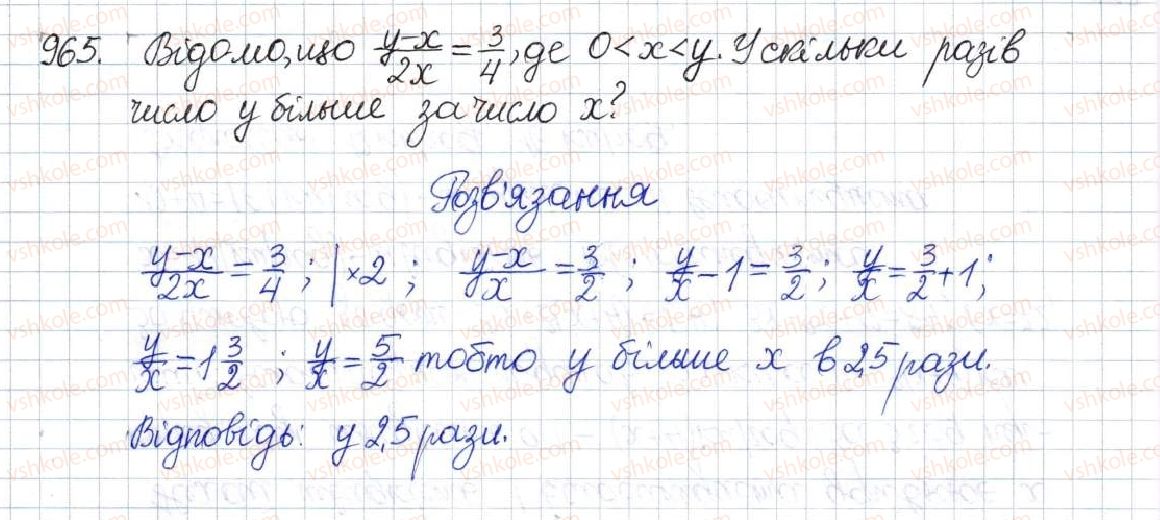 965. Відомо, що (y-x)/2x = 3/4, де 0 < x < y. У скільки разів
число y більше за число x?
Розв'язання
(y-x)/2x = 3/4 ; | ×2 ; (y-x)/x = 3/2 ; y/x - 1 = 3/2 ; y/x = 3/2 + 1 ;
y/x = 1 3/2 ; y/x = 5/2 тобто y більше x в 2,5 рази.
Відповідь: у 2,5 рази.